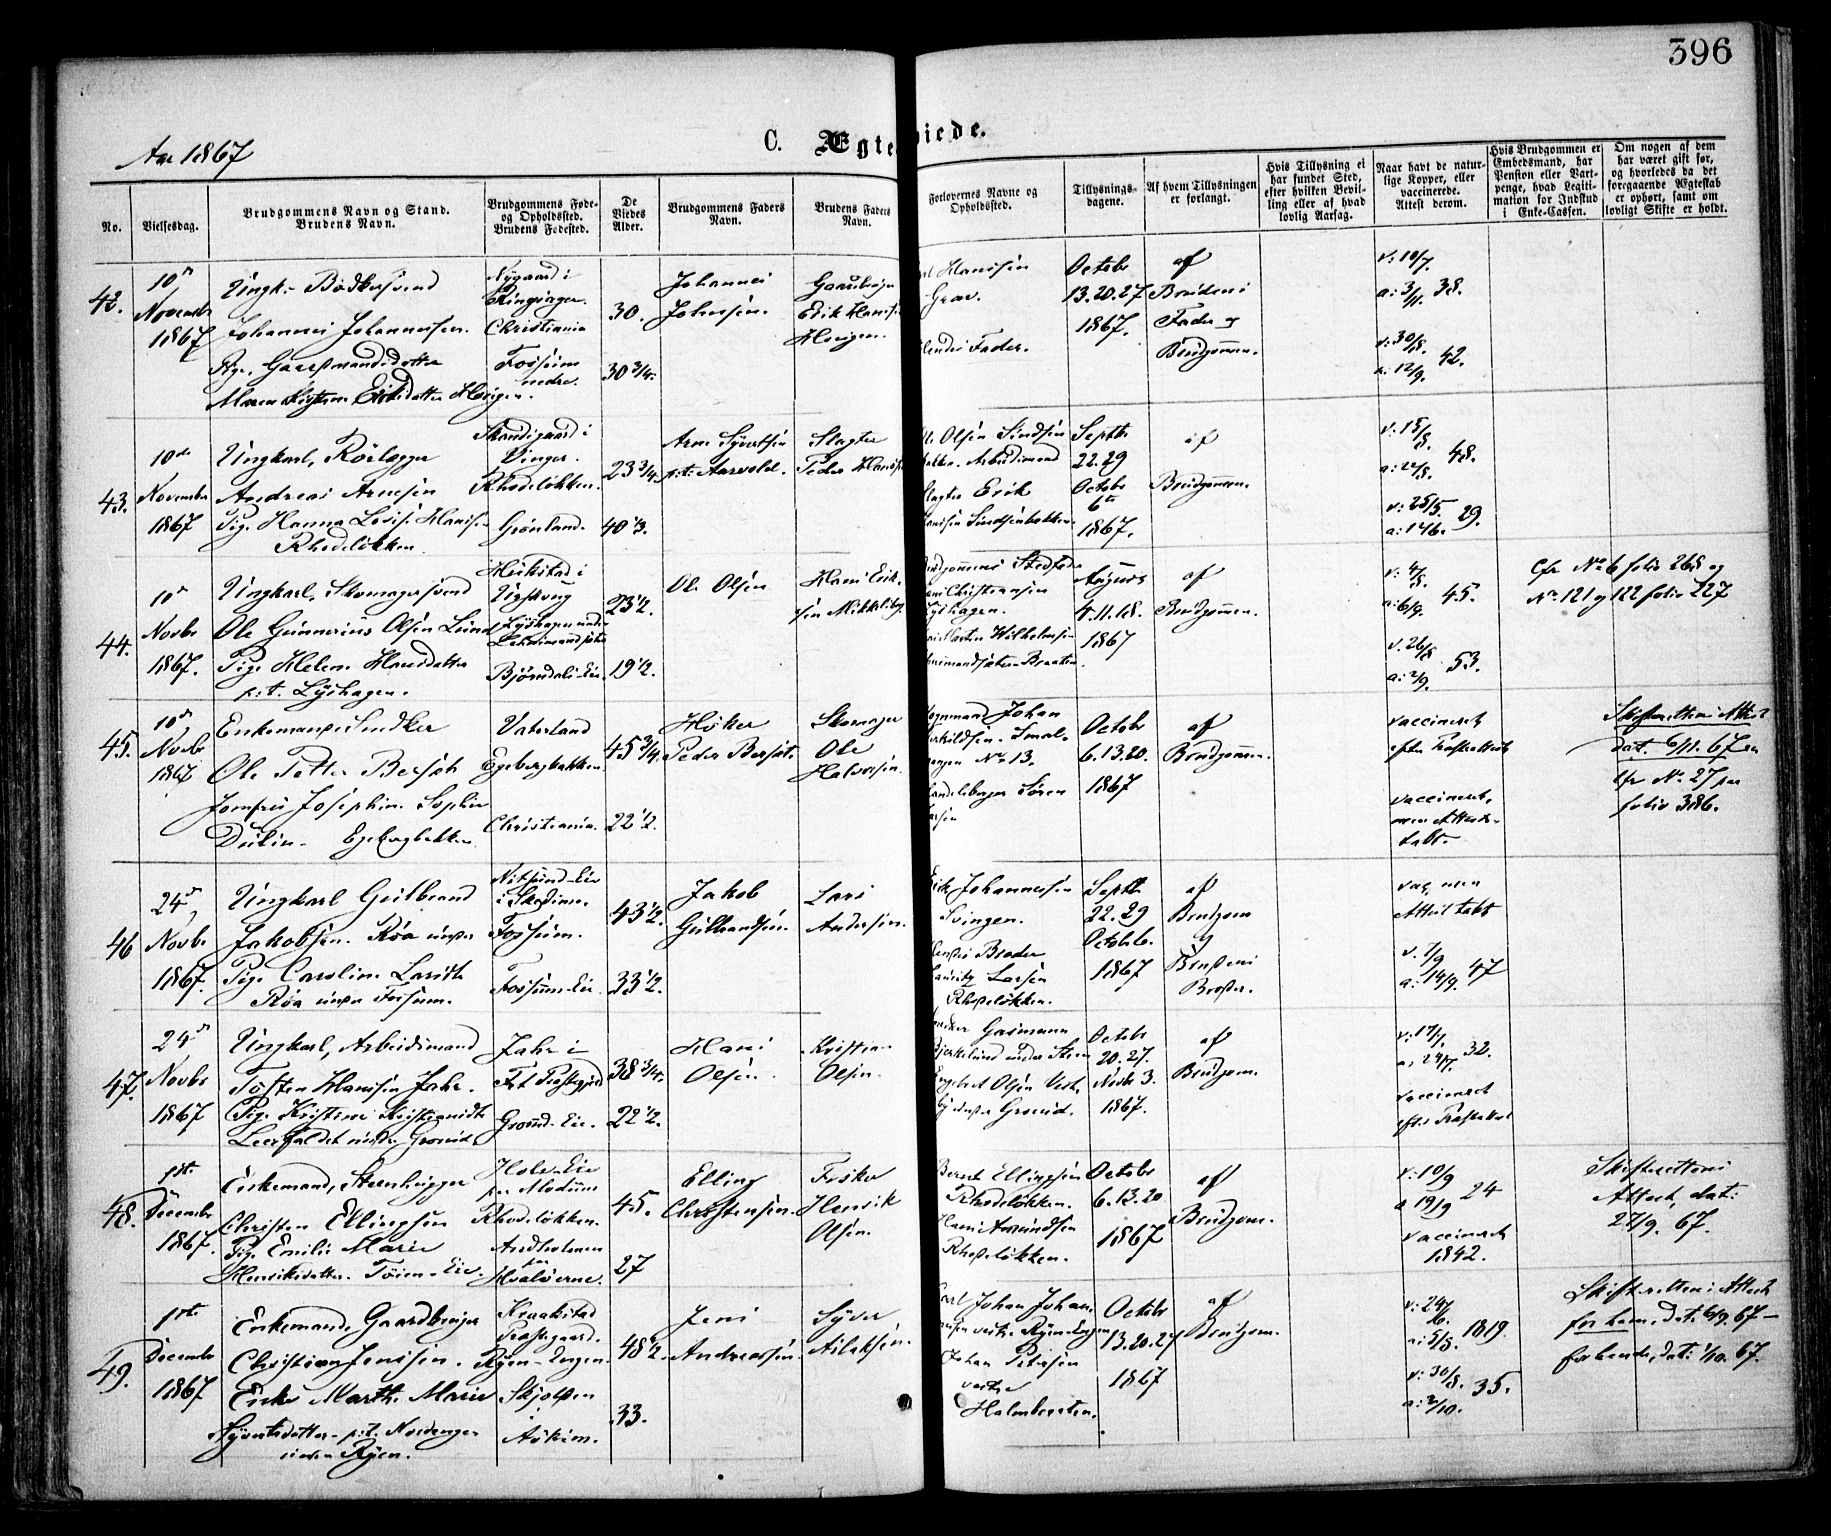 396
Aar 1867
C. Ægteviede.
No.
Vielsesdag.
Brudgommens Navn og Stand.
Brudens Navn.
Brudgommens Føde-
og Opholdssted.
Brudens Fødested.
De
Viedes
Alder.
Brudgommens Faders
Navn.
Brudens Faders
Navn.
Forlovernes Navne og
Opholdssted.
Tillysnings-
dagene.
Af hvem Tillysningen
er forlangt.
Hvis Tillysning ei
har fundet Sted,
efter hvilken Bevil-
ling eller af hvad
lovlig Aarsag.
Naar havt de natur-
lige Kopper, eller
vaccinerede.
Attest derom.
Hvis Brudgommen er
Embedsmand, har
Pension eller Vart-
penge, hvad Legiti-
mation for Indskud
i Enke-Cassen.
Om nogen af dem
har været gift før,
og hvorledes da det
foregaaende Ægteskab
er ophørt, samt om
lovligt Skifte er holdt.
42.
10de
Novembr
1867
Ungk. Bødkersvend
Johannes Johannessen.
Pige, Gaardmandsdatter
Maren Kirstine Eriksdatter Haugen.
Nygaard i
Ringsager.
Christiania
Fossum
nedre.
30.
30 3/4.
Johannes
Johnsen.
Gaardbruger
Erik Hansen
Haugen.
Hansen
Grav.
Fader.
Octobr
13.20.27
1867.
af
Brudens
Fader og
Brudgommen.
v: 10/7.
a: 3/11. 38.
v: 30/8.
a: 12/9. 42.
43.
10de
November
1867
Ungkarl, Rørlægger
Andreas Arnesen
Pige Hanna Lovise Hansen
Rhodeløkken.
Vinger.
Rhodeløkken.
Grønland.
23 3/4.
40 1/3.
Arne Syvertsen
p.t. Aarvold.
Slagter
Peder Hansen
Ole Olsen Sindsen
bakken. Arbeidsmand
Slagter Erik
Hansen Sindsenbakken.
Septbr
22.29
Octobr
6te
1867.
af
Brudgommen.
v: 15/8.
a: 22/8. 48.
v: 25/5.
a: 14/6. 29.
44.
10de
Novbr
1867.
Ungkarl, Skomagersvend
Ole Gunnerius Olsen Lund
Pige Helene Hansdatter
p.t. Lyshagen.
Ugskoug
Lyshagen under
Bjørndals-Eie
23 1/2.
19 1/2.
Ole Olsen
Hans Erik-
sen Mikkelsby
Brudgommens Stedfader
Hans Christiansen
Lyshagen.
Wilhelmsen
Braaten.
August
4.11.18.
1867
af
Brudgommen.
v: 4/8.
a: 6/9. 45.
v. 26/8
a: 2/9. 53.
Cfr No 6 folio 268 og
No 121 og 122 folio 227
45.
10de
Novbr
1867
Enkemand Snedker
Ole Petter Bersæt
Jomfru Josephine Sophie
Dulin. Egebergbakken
Vaterland
Egebergbakken.
Christiania.
45 3/4.
22 1/2.
Høker
Peder Bersæt.
Skomager
Ole
Halvorsen.
Vognmand Johan
Terkildsen. Smal-
gangen No 13.
Handelsborger Søren
Octobr
6.13.20.
1867
af
Brudgommen.
vaccineret
efter Præsteattest
vaccineret,
men Attesten
tabt.
Skifterettens Attest
dat. 6/11. 67
cfr No. 27 paa
folio 386.
46
24de
Novbr
1867.
Ungkarl Gulbrand
Jakobsen. Røa under
Pige Caroline Larsdtr
Røa under Fossum.
Nitsund-Eie
i Skedsmo.
Fossum.
Fossum-Eie.
43 1/2.
33 1/2.
Jakob
Gulbrandsen.
Lars
Andersen.
Erik Johannessen
Svingen.
Brudens Broder
Lauritz Larsen
Rhodeløkken.
Septbr
22.29
Octobr 6.
1867
af
Brudgom
og
Brudens
Broder.
vac, men
Attest tabt
v. 7/9
a: 14/9. 47
47.
24de
Novbr
1867
Ungkarl, Arbeidsmand
Tosten Hansen Jahr.
Pige Kristine Kristiansdtr
Leerfaldet under Grorud.
Jahr i
Fet Præstegjeld
Grorud-Eie.
38 3/4.
22 1/2.
Hans
Olsen.
Kristian
Olsen.
Snedker Gasmann
Bjerkelund under Steen
Engebret Olsen Vest-
by under Grorud.
Octobr
20.27.
Novbr 3.
1867.
af
Brudgom.
v: 17/7.
a: 24/7. 32.
vaccineret
efter Præsteattest
48.
1ste
December
1867.
Enkemand, Steenhugger
Christen Ellingsen
Pige Emilie Marie
Henriksdatter. Tøien-Eie.
Hole-Eie
paa Modum
Rhodeløkken.
Hvaløerne.
45.
27
Elling
Christensen.
Fisker
Henrik
Olsen.
Bernt Ellingsen
Rhodeløkken.
Hans Amundsen
Rhodeløkken.
Octobr
6.13.20
1867
af
Brudgom.
v: 10/9
a 19/9 24
vaccineret
1842.
Skifterettens
Attest, dat:
27/9. 67.
49.
1ste
December
1867
Enkemand, Gaardbruger
Christian Jenssen.
Enke Marthe Marie
Syvertsdatter p.t. Nordengen
under Ryen.
Kraakstad
Præstegaard.
Ryen-Engen.
Skjolden
i
Askim.
48 1/2.
33.
Jens
Andreassen.
Syver
Aslaksen.
Carl Johan Johan-
nesen vestre Ryen-Engen
Johan Petersen
vestre
Halmbraaten.
Octobr
13.20.27
1867
af
Brudgom.
v: 24/6.
a: 5/8. 1819.
v: 30/8.
a: 2/10. 35.
Skifterettens Attest
for ham, dat: 6/9. 67 —
for hende, dat: 1/10. 67.